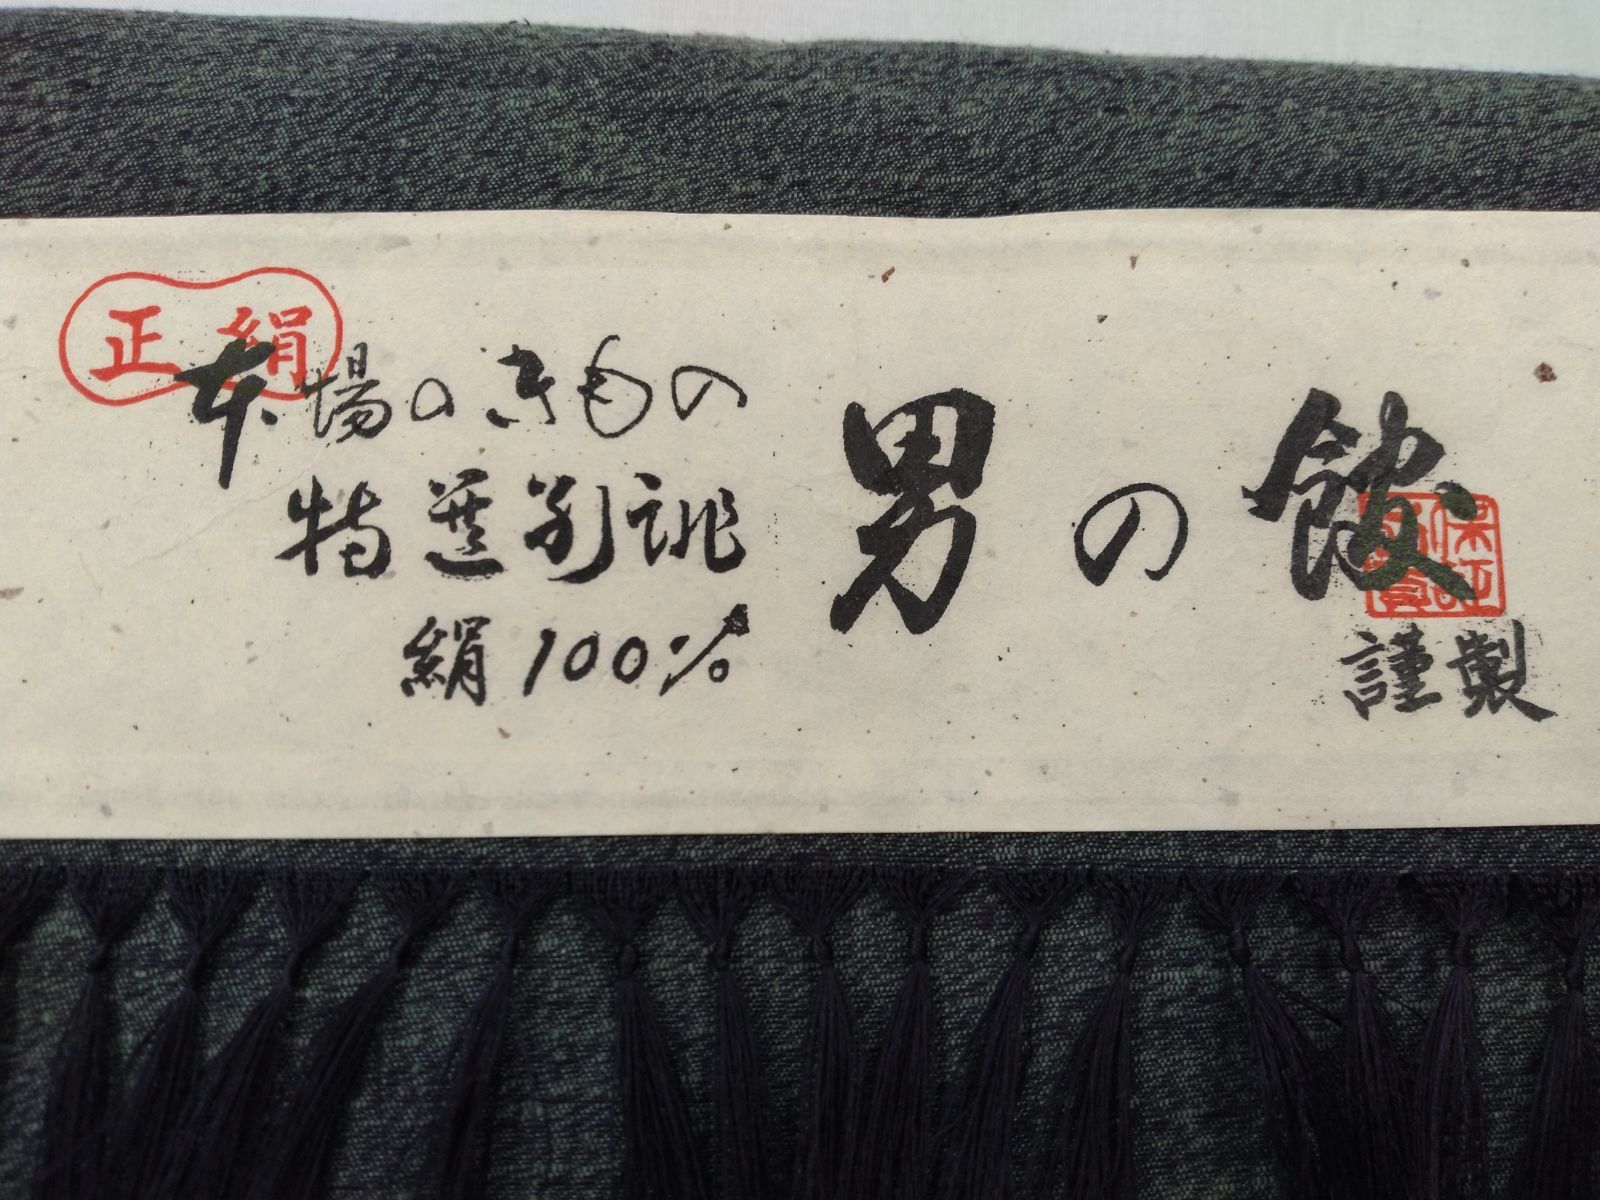 正絹
本場のきもの
特選別誂
絹100%
男の
保証
謹製